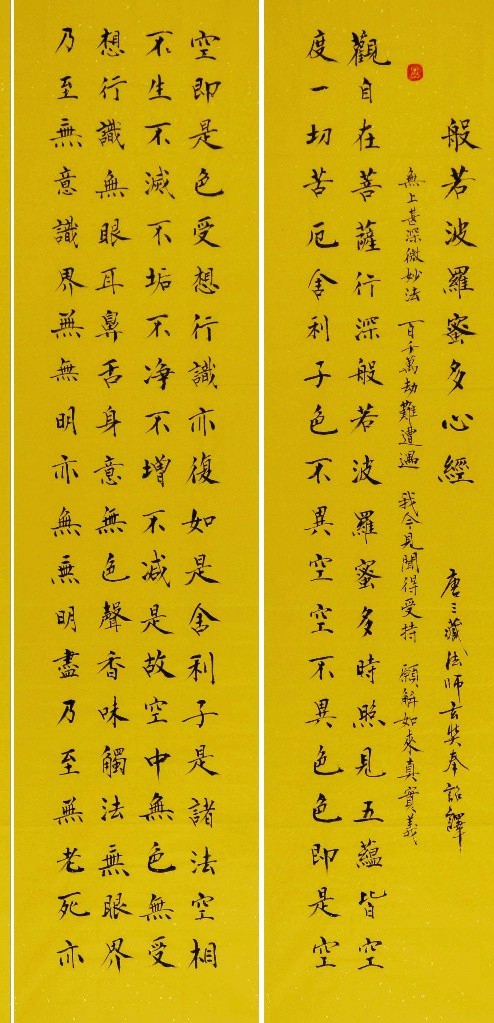 般若波羅蜜多心經
唐三藏法師玄奘奉詔譯
無上甚深微妙法 百千萬劫難遭遇 我今見聞得受持 願解如來真實義
觀自在菩薩行深般若波羅蜜多時照見五蘊皆空
度一切苦厄舍利子色不異空空不異色色即是空
空即是色受想行識亦復如是舍利子是諸法空相
不生不滅不垢不淨不增不減是故空中無色無受
想行識無眼耳鼻舌身意無色聲香味觸法無眼界
乃至無意識界無無明亦無無明盡乃至無老死亦